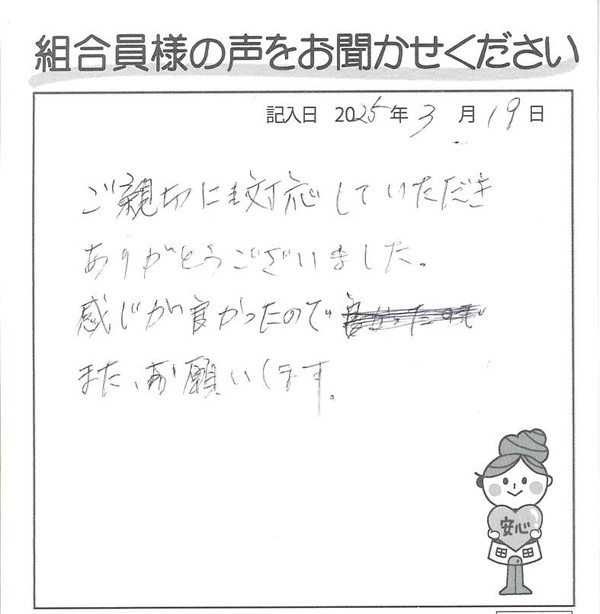 組合員様の声をお聞かせください
記入日 2025年3月19日
ご親切に対応していただき
ありがとうございました。
感じが良かったので
また、お願いします。
安心